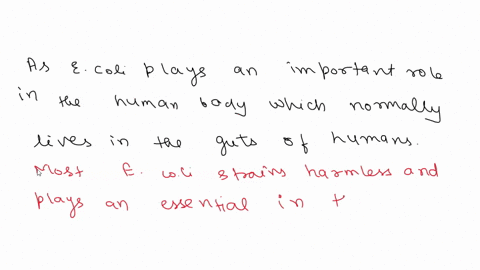 As E. coli plays an important role
in the human body which normally
lives in the guts of humans.
Most E. coli strains harmless and
plays an essential in t